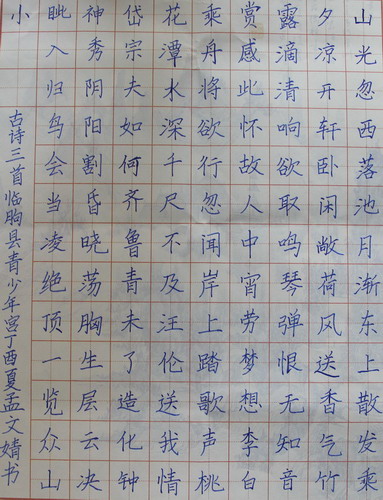 山光忽西落池月渐东上散发乘
夕凉开轩卧闲敞荷风送香气竹
露滴清响欲取鸣琴弹恨无知音
赏感此怀故人中宵劳梦想李白
乘舟将欲行忽闻岸上踏歌声桃
花潭水深千尺不及汪伦送我情
岱宗夫如何齐鲁青未了造化钟
神秀阴阳割昏晓荡胸生层云决
眦入归鸟会当凌绝顶一览众山
小
古诗三首临朐县青少年宫丁酉夏孟文婧书